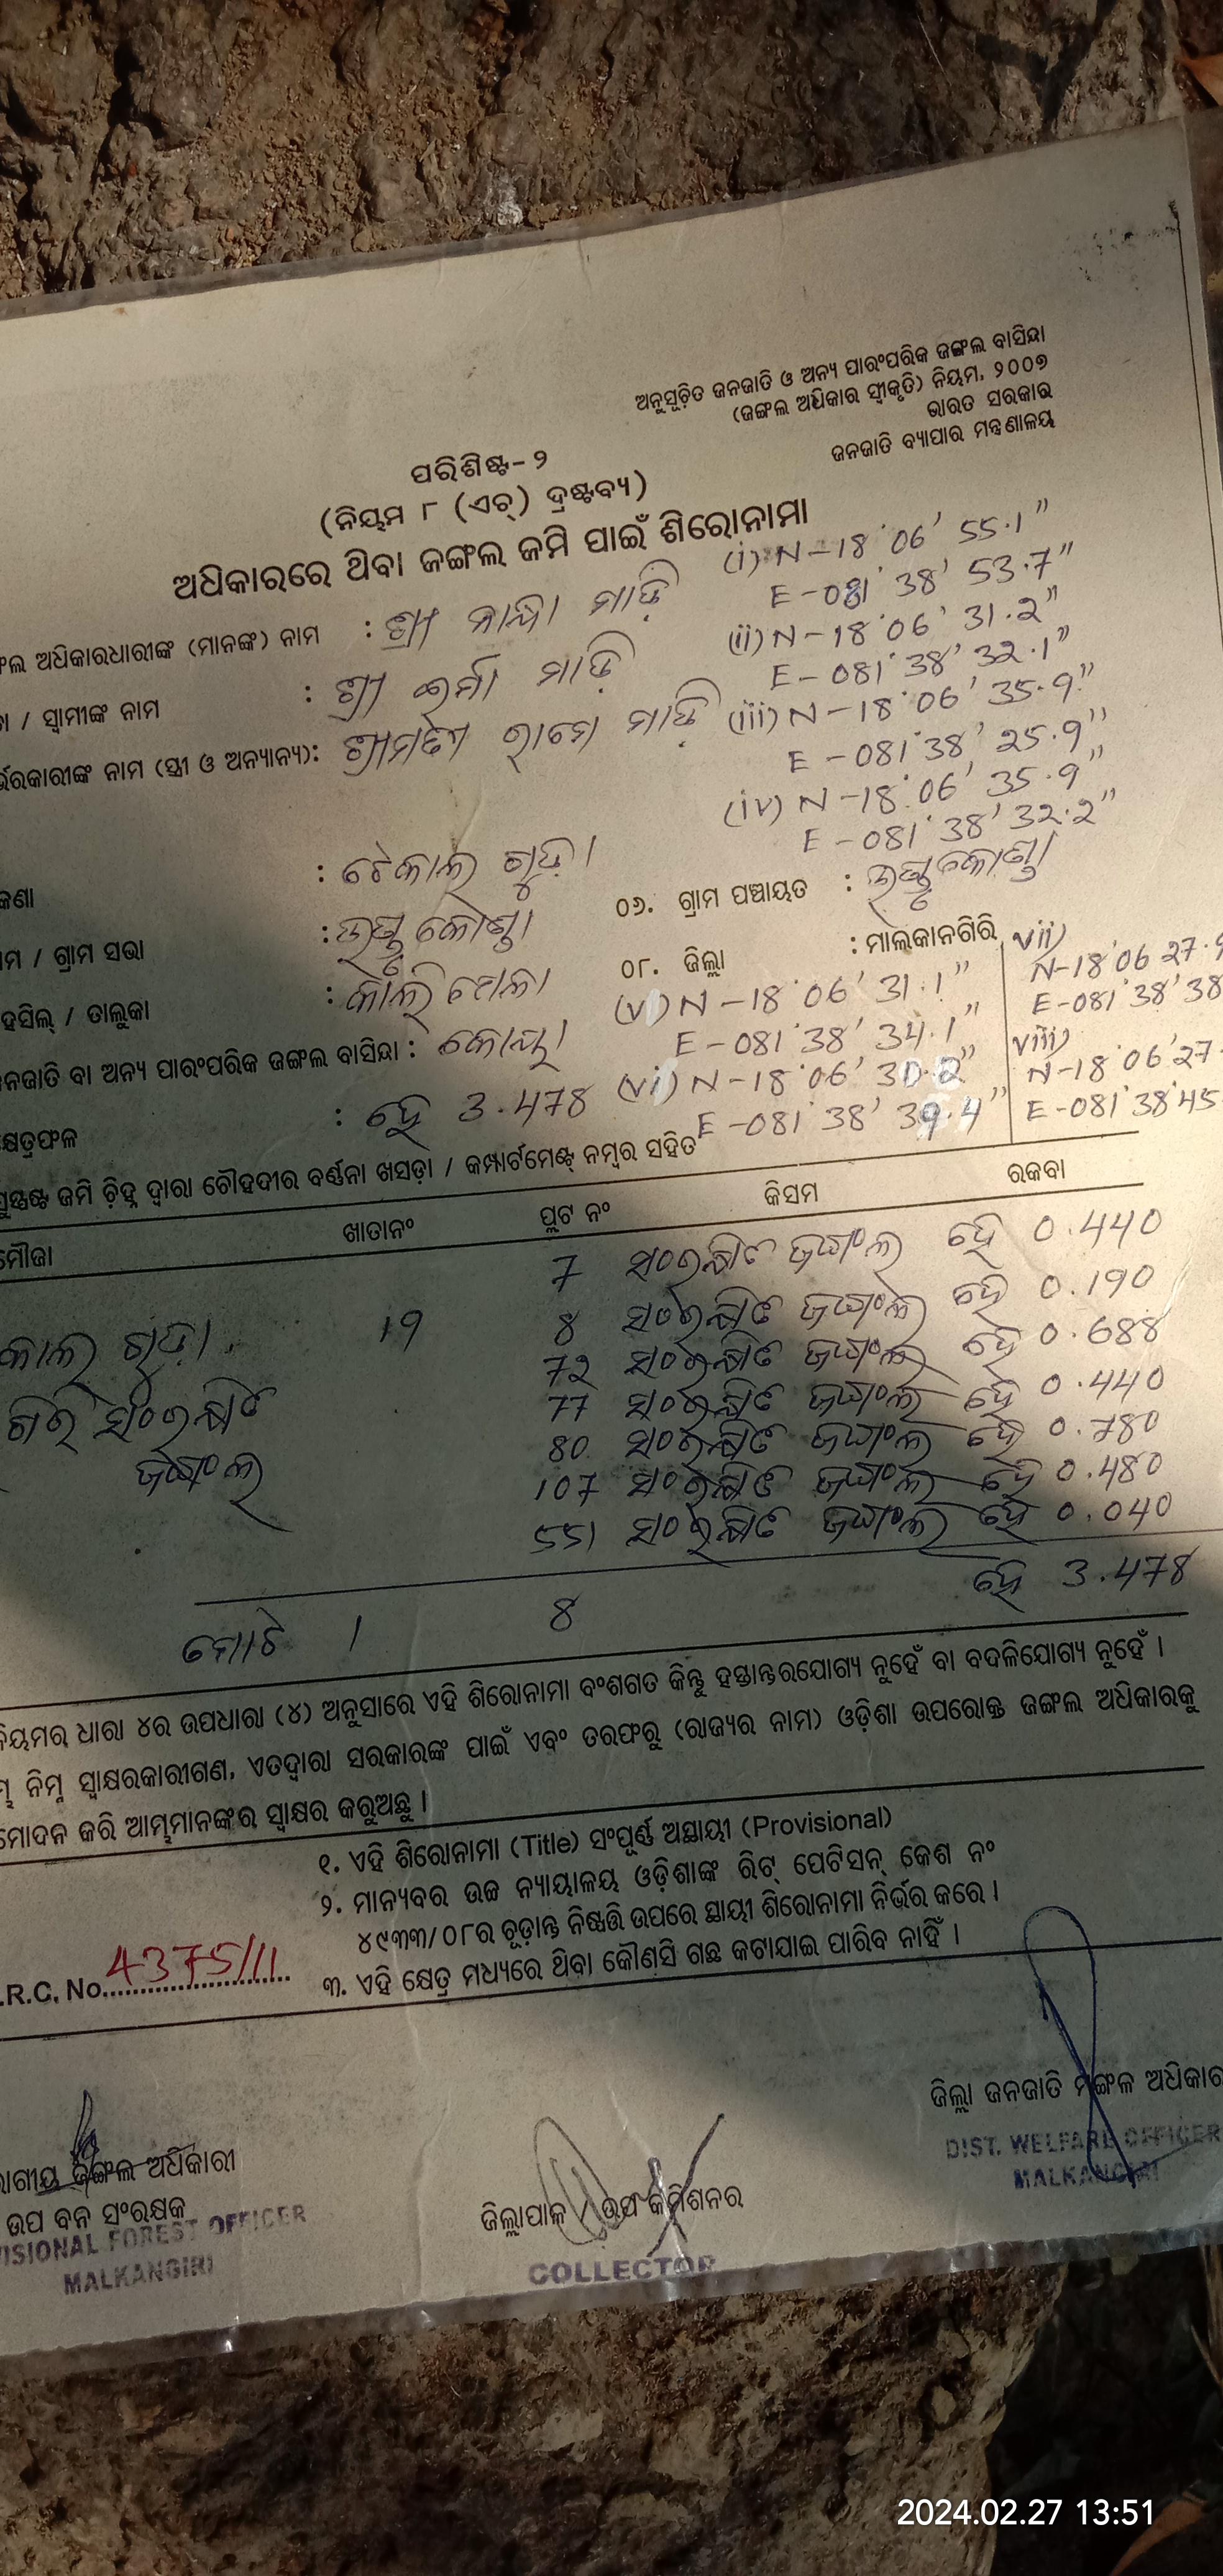 ଅନୁସୂଚିତ ଜନଜାତି ଓ ଅନ୍ୟ ପାରଂପରିକ ଜଙ୍ଗଲ ବାସିନ୍ଦା
(ଜଙ୍ଗଲ ଅଧିକାର ସ୍ୱୀକୃତି) ନିୟମ, ୨୦୦୭
ଭାରତ ସରକାର
ଜନଜାତି ବ୍ୟାପାର ମନ୍ତ୍ରଣାଳୟ
ପରିଶିଷ୍ଟ-୨
(ନିୟମ ୮ (ଏଚ୍) ଦ୍ରଷ୍ଟବ୍ୟ)
ଅଧିକାରରେ ଥିବା ଜଙ୍ଗଲ ଜମି ପାଇଁ ଶିରୋନାମା
(i) N-18°06'55.1"
E-081°38'53.7"
ଅଧିକାରଧାରୀଙ୍କ (ମାନଙ୍କ) ନାମ : ଶ୍ରୀ ମାଡ଼ି
(ii) N-18°06'31.2"
E-081°38'32.1"
/ ସ୍ୱାମୀଙ୍କ ନାମ : ଶ୍ରୀ ମାଡ଼ି
(iii) N-18°06'35.9"
E-081°38'25.9"
ନାମ (ସ୍ତ୍ରୀ ଓ ଅନ୍ୟାନ୍ୟ): ଶ୍ରୀମତୀ ମାଡ଼ି
(iv) N-18°06'35.9"
E-081°38'32.2"
: ଟେକାଲ ଗୁଡ଼ା
୦୬. ଗ୍ରାମ ପଞ୍ଚାୟତ :
/ ଗ୍ରାମ ସଭା :
୦୮. ଜିଲ୍ଲା : ମାଲକାନଗିରି
/ ତାଲୁକା : କାଲିମେଳା
(v) N-18°06'31.1"
E-081°38'34.1"
vii)
N-18°06'27.
E-081°38'38
ବା ଅନ୍ୟ ପାରଂପରିକ ଜଙ୍ଗଲ ବାସିନ୍ଦା : କୋୟା
(vi) N-18°06'
E-081°38'
viii)
N-18°06'27
E-081°38'45
: ହେ 3.478
ଜମି ଚିହ୍ନ ଦ୍ୱାରା ଚୌହଦୀର ବର୍ଣ୍ଣନା ଖସଡ଼ା / କମ୍ପାର୍ଟମେଣ୍ଟ୍ ନମ୍ବର ସହିତ
ମୌଜା ଖାତାନଂ ପ୍ଲଟ ନଂ କିସମ ରକବା
7 ସଂରକ୍ଷିତ ଜଙ୍ଗଲ ହେ 0.440
ଗୁଡ଼ା 19 8 ସଂରକ୍ଷିତ ଜଙ୍ଗଲ ହେ 0.190
72 ସଂରକ୍ଷିତ ଜଙ୍ଗଲ ହେ 0.688
ସଂରକ୍ଷିତ 77 ସଂରକ୍ଷିତ ଜଙ୍ଗଲ ହେ 0.440
ଜଙ୍ଗଲ 80 ସଂରକ୍ଷିତ ଜଙ୍ଗଲ ହେ 0.780
107 ସଂରକ୍ଷିତ ଜଙ୍ଗଲ ହେ 0.480
551 ସଂରକ୍ଷିତ ଜଙ୍ଗଲ ହେ 0.040
ମୋଟ 1 8 ହେ 3.478
ଧାରା ୪ର ଉପଧାରା (୪) ଅନୁସାରେ ଏହି ଶିରୋନାମା ବଂଶଗତ କିନ୍ତୁ ହସ୍ତାନ୍ତରଯୋଗ୍ୟ ନୁହେଁ ବା ବଦଳିଯୋଗ୍ୟ ନୁହେଁ ।
ନିମ୍ନ ସ୍ୱାକ୍ଷରକାରୀଗଣ, ଏତଦ୍ୱାରା ସରକାରଙ୍କ ପାଇଁ ଏବଂ ତରଫରୁ (ରାଜ୍ୟର ନାମ) ଓଡ଼ିଶା ଉପରୋକ୍ତ ଜଙ୍ଗଲ ଅଧିକାରକୁ
କରି ଆମ୍ଭମାନଙ୍କର ସ୍ୱାକ୍ଷର କରୁଅଛୁ ।
୧. ଏହି ଶିରୋନାମା (Title) ସଂପୂର୍ଣ୍ଣ ଅସ୍ଥାୟୀ (Provisional)
୨. ମାନ୍ୟବର ଉଚ୍ଚ ନ୍ୟାୟାଳୟ ଓଡ଼ିଶାଙ୍କ ରିଟ୍ ପେଟିସନ୍ କେଶ ନଂ
୪୯୩୩/୦୮ର ଚୂଡ଼ାନ୍ତ ନିଷ୍ପତ୍ତି ଉପରେ ସ୍ଥାୟୀ ଶିରୋନାମା ନିର୍ଭର କରେ ।
୩. ଏହି କ୍ଷେତ୍ର ମଧ୍ୟରେ ଥିବା କୌଣସି ଗଛ କଟାଯାଇ ପାରିବ ନାହିଁ ।
.R.C. No. 4375/11
ଜିଲ୍ଲା ଜନଜାତି ମଙ୍ଗଳ
DIST. WELFARE OFFICER
MALKANGIRI
ଜଙ୍ଗଲ ଅଧିକାରୀ
ଉପ ବନ ସଂରକ୍ଷକ
FOREST OFFICER
MALKANGIRI
ଜିଲ୍ଲାପାଳ / ଉପ କମିଶନର
COLLECTOR
2024.02.27 13:51